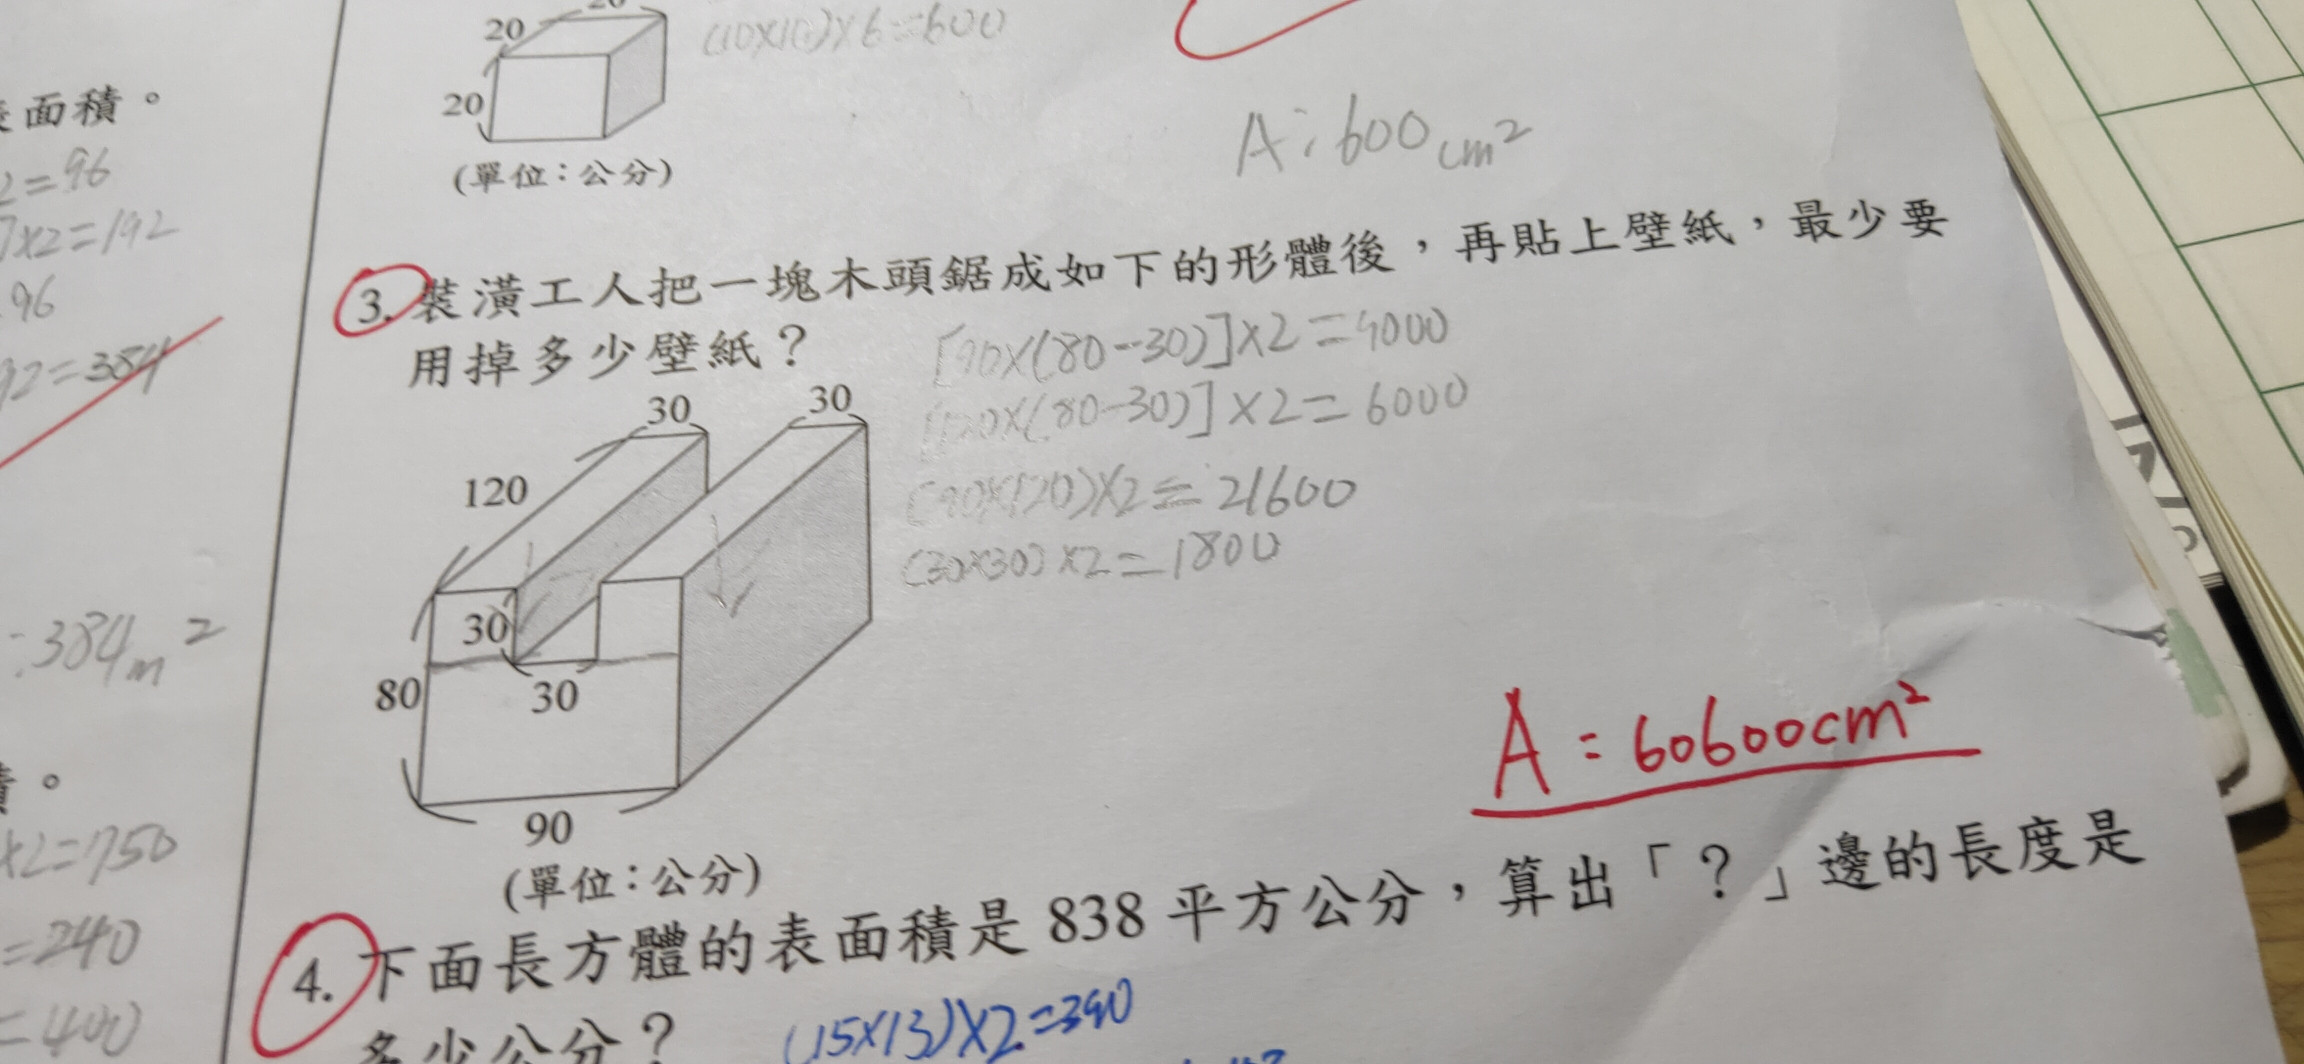 面積。
2=96
7x2=192
96
92=384
384m²
x2=750
=240
=400
20
20
20
(單位：公分)
(10x10)x6=600
A:600cm²
3. 裝潢工人把一塊木頭鋸成如下的形體後，再貼上壁紙，最少要
用掉多少壁紙？
[90x(80-30)]x2=9000
[120x(80-30)]x2=6000
(90x120)x2=21600
(30x30)x2=1800
30
30
120
30
80
30
90
(單位：公分)
A：60600cm²
4. 下面長方體的表面積是 838 平方公分，算出「？」邊的長度是
多少公分？
(15x13)x2=390